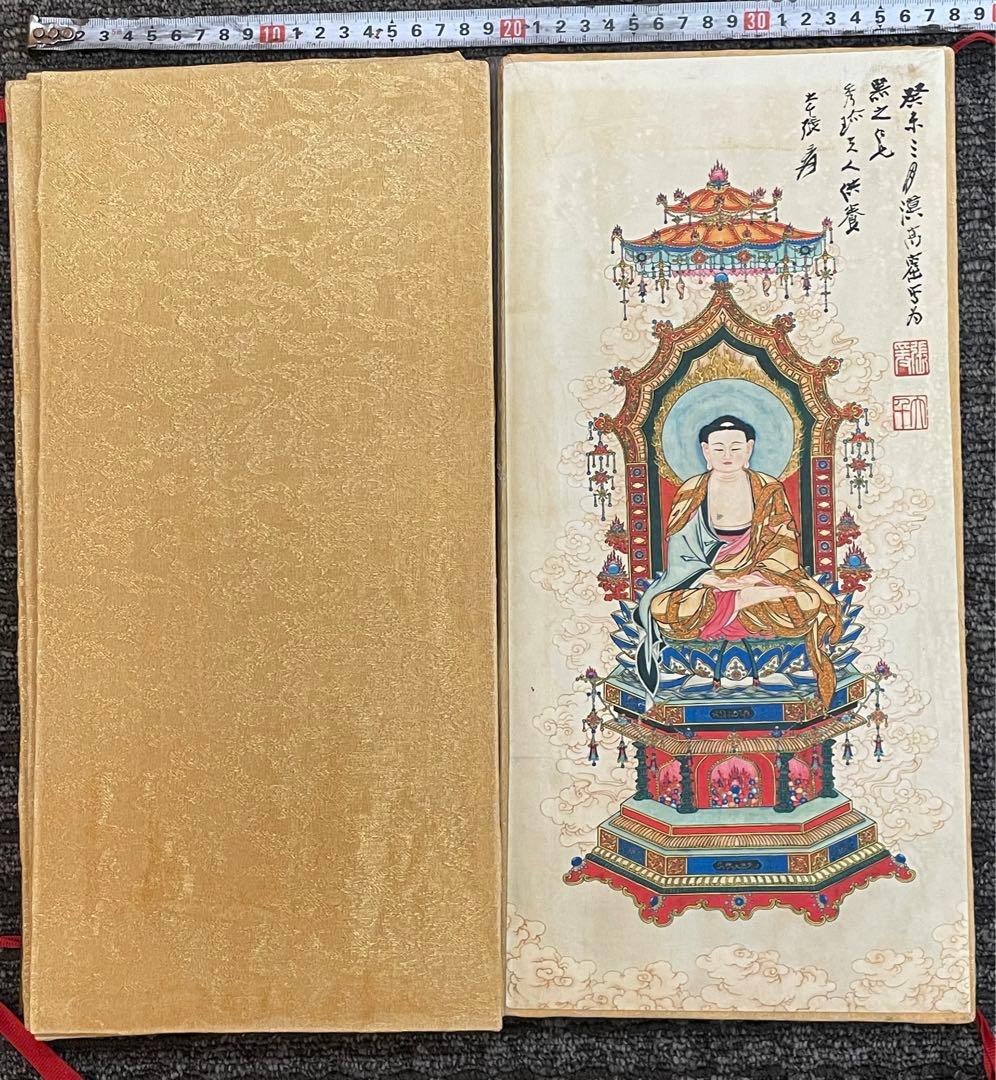 2 3 4 5 6 7 8 9 10 1 2 3 4 5 6 7 8 9 20 1 2 3 4 5 6 7 8 9 30 1 2 3 4 5 6 7 8 9
癸未三月漠高窟写为
之兄
秀夫人供養
大千張爰
張爰
大千